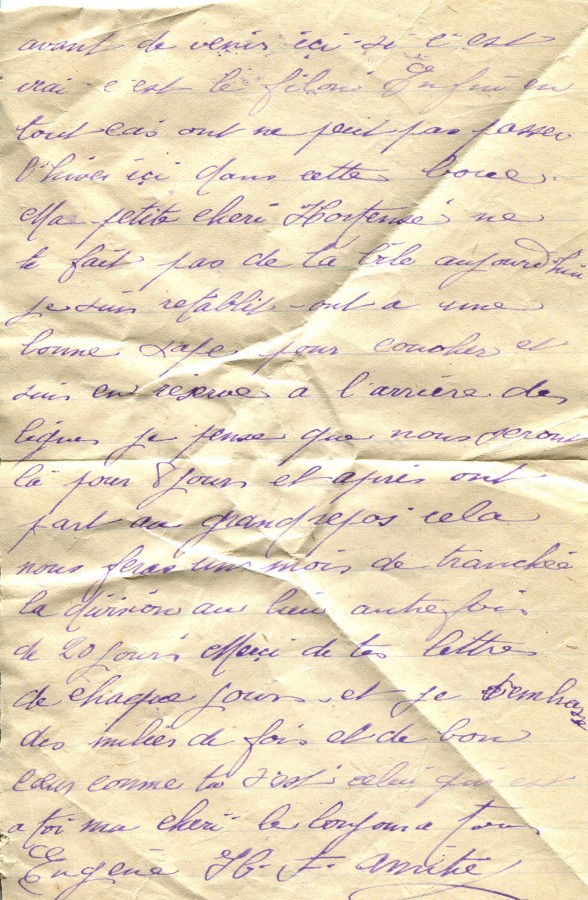 avant de venir içi - si c'est
vrai c'est le filon! Enfin en
tout cas ont ne peut pas passer
l'hiver içi dans cette boue.
Ma petite cheri Hortense ne
te fait pas de la bile aujourd'hui
je suis retablit - ont a une
bonne sape pour coucher et
suis en réserve a l'arrière des
lignes je pense que nous seront
là pour 8 jours et après ont
part au grand repos cela
nous feras un mois de tranchée
la division au lieu autrefois
de 20 jours Merçi de tes lettres
de chaque jours - et je t'embrasse
des milies de fois et de bon
cœur comme tu s'est celui qui est
a toi ma cheri le toujours
Eugène H. F.